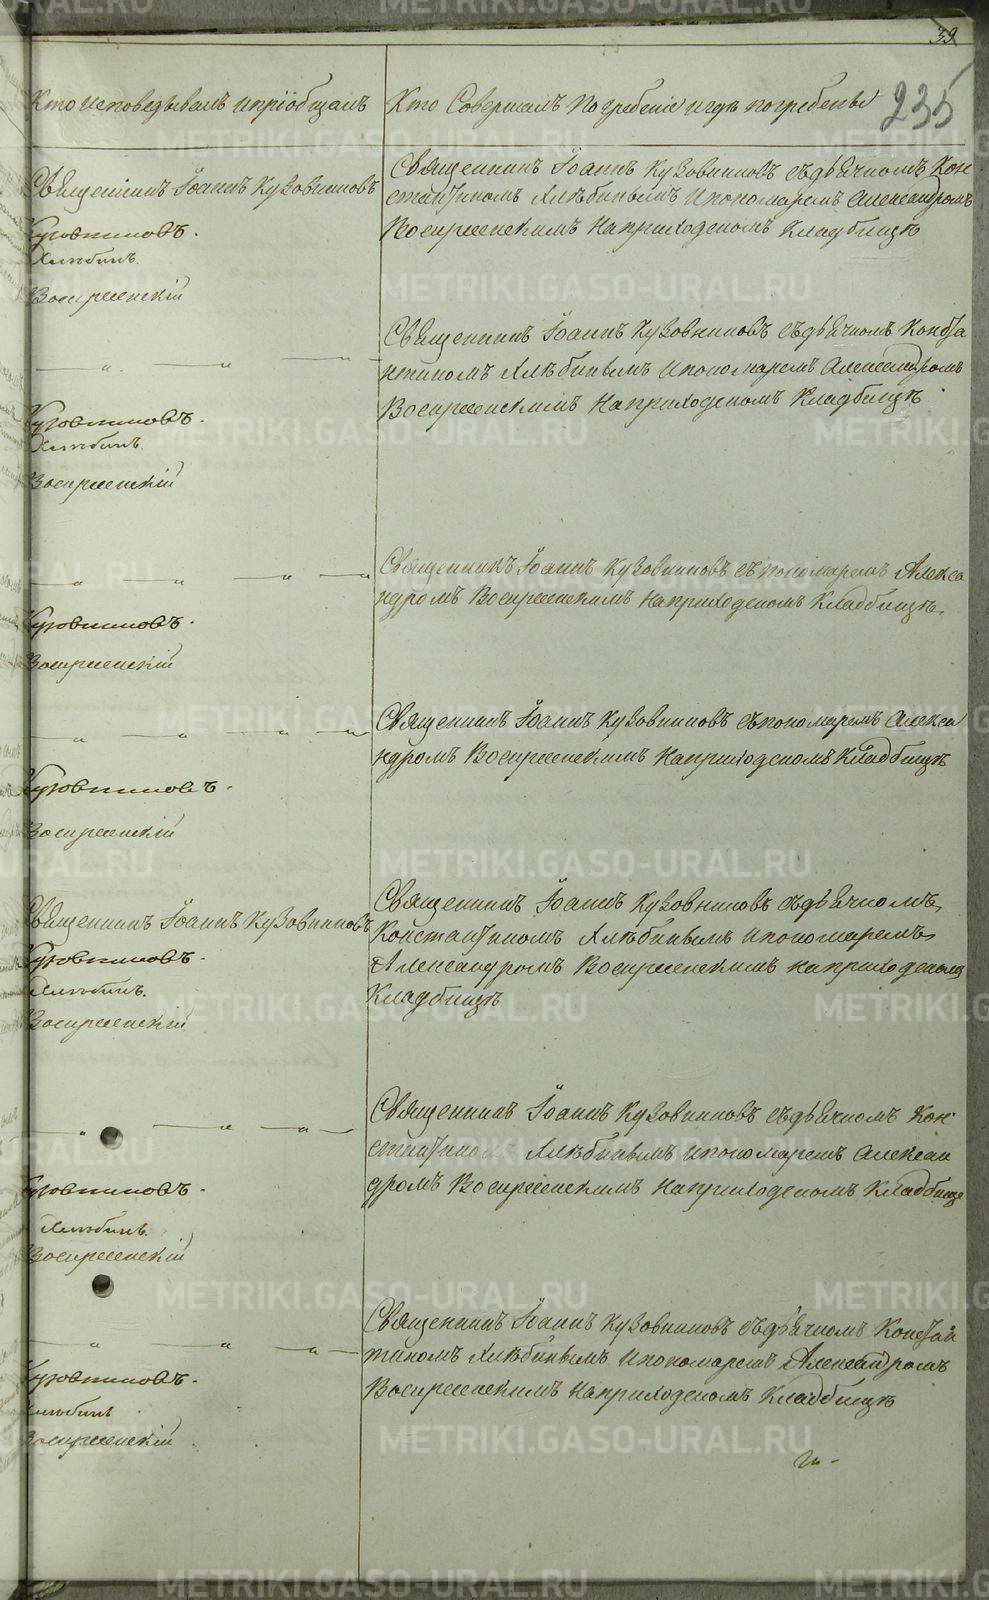 39
235
Кто исповѣдывалъ и прiобщалъ
Кто Совершалъ Погребенiе и гдѣ погребены
Священникъ Iоаннъ Кузовниковъ
Кузовниковъ.
Хлѣбинъ.
Воскресенскiй
Священникъ Iоаннъ Кузовниковъ съ дьячкомъ Кон
стантиномъ Хлѣбинымъ и пономаремъ Александромъ
Воскресенскимъ на приходскомъ Кладбищѣ
— „ — „ —
Кузовниковъ.
Хлѣбинъ.
Воскресенскiй
Священникъ Iоаннъ Кузовниковъ съ дьячкомъ Конста
нтиномъ Хлѣбинымъ и пономаремъ Александромъ
Воскресенскимъ на приходскомъ Кладбищѣ
— „ — „ — „ — „
Кузовниковъ.
Воскресенскiй
Священникъ Iоаннъ Кузовниковъ съ пономаремъ Алекса
ндромъ Воскресенскимъ на приходскомъ Кладбищѣ.
— „ — „ — „ — „
Кузовниковъ.
Воскресенскiй
Священникъ Iоаннъ Кузовниковъ съ пономаремъ Алекса
ндромъ Воскресенскимъ на приходскомъ Кладбищѣ
Священникъ Iоаннъ Кузовниковъ
Кузовниковъ.
Хлѣбинъ.
Воскресенскiй
Священникъ Iоаннъ Кузовниковъ съ дьячкомъ
Константиномъ Хлѣбинымъ и пономаремъ
Александромъ Воскресенскимъ на приходскомъ
Кладбищѣ
„ — „ — „ —
Кузовниковъ.
Хлѣбинъ.
Воскресенскiй
Священникъ Iоаннъ Кузовниковъ съ дьячкомъ Кон
стантиномъ Хлѣбинымъ и пономаремъ Алексан
дромъ Воскресенскимъ на приходскомъ Кладбище
— „ — „ — „ —
Кузовниковъ.
Хлѣбинъ
Воскресенскiй
Священникъ Iоаннъ Кузовниковъ съ дьячкомъ Констан
тиномъ Хлѣбинымъ и пономаремъ Александромъ
Воскресенскимъ на приходскомъ Кладбищѣ
METRIKI.GASO-URAL.RU